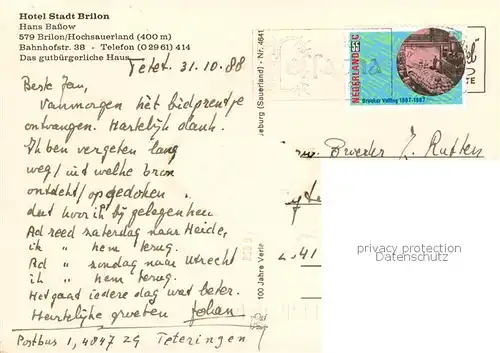 Hotel Stadt Brilon
Hans Baßow
579 Brilon/Hochsauerland (400 m)
Bahnhofstr. 38 - Telefon (0 29 61) 414
Das gutbürgerliche Haus
Tetet. 31.10.88
Beste Jan,
Vanmorgen het bidprentje
ontvangen. Hartelijk dank.
Ik ben vergeten lang
weg/uit welke bron
ontdekt/opgedoken
dat hoor ik bij gelegenheid
Ad reed zaterdag naar Heide,
ik " hem terug.
Ad " zondag naar Utrecht
ik " hem terug.
Het gaat iedere dag wat beter.
Hartelijke groeten Johan
Postbus 1, 4847 ZG Teteringen
eburg (Sauerland) - Nr. 4641
100 Jahre Verle
NEDERLAND
55 c
Broeker Veiling 1887-1987
Broeder J. Rutten
privacy protection